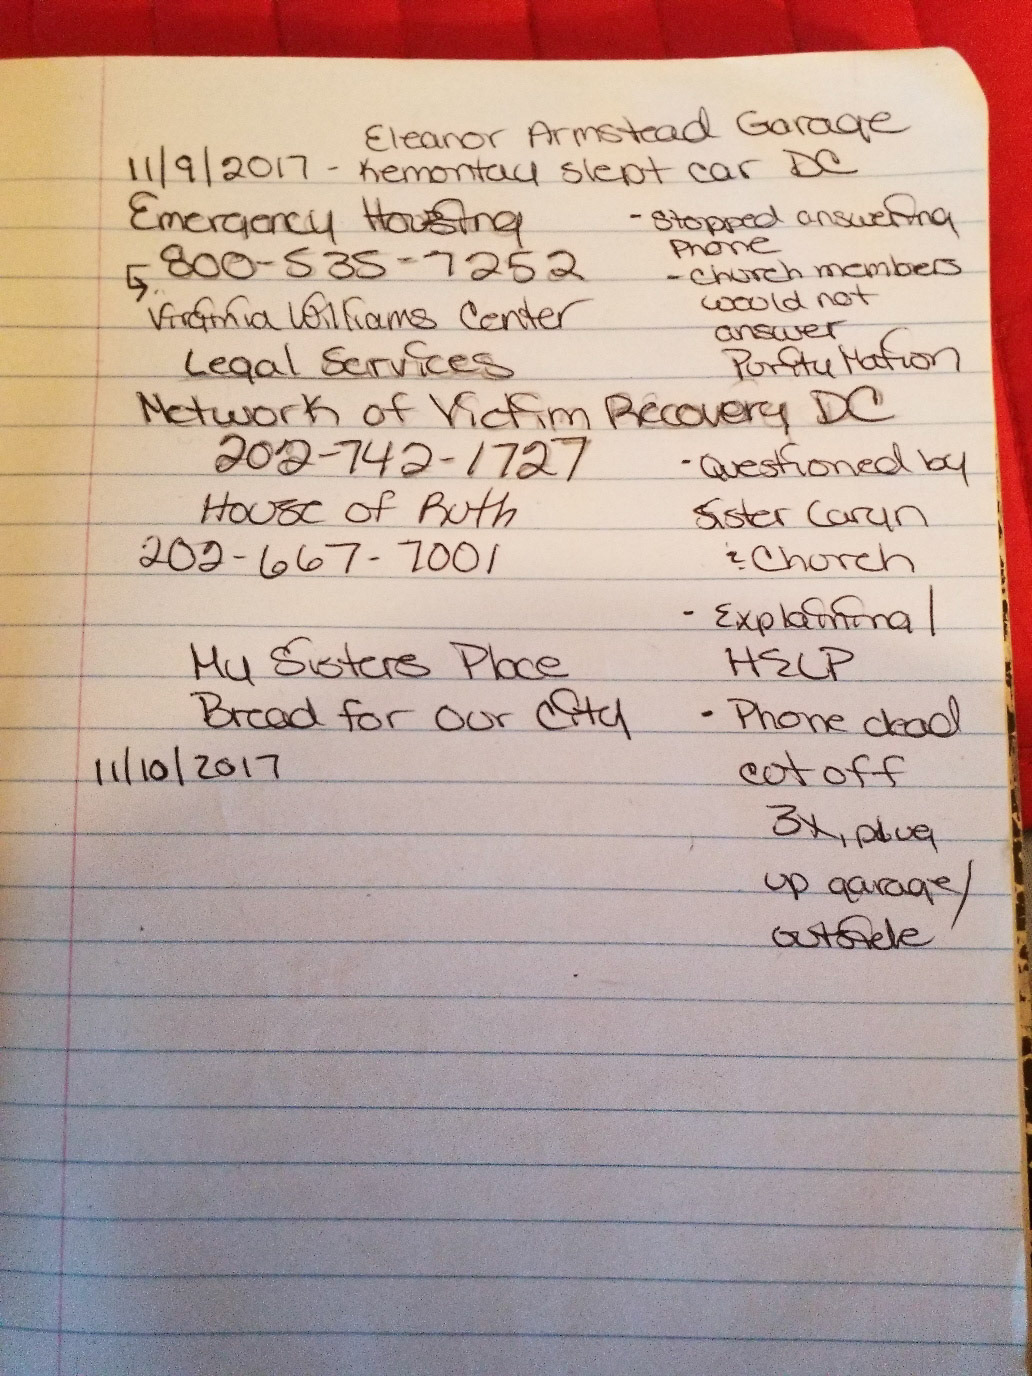 Eleanor Armstead Garage
11/9/2017 - Kemontay slept car DC
Emergency Housing
800-535-7252
Virginia Williams Center
Legal Services
Network of Victim Recovery DC
202-742-1727
House of Ruth
202-667-7001
My Sisters Place
Bread for our City
11/10/2017
- Stopped answering
Phone
- Church members
would not
answer
Purity Nation
- Questioned by
Sister Caryn
& Church
- Explaining/
HELP
- Phone dead
cut off
3x, plug
up garage/
outside